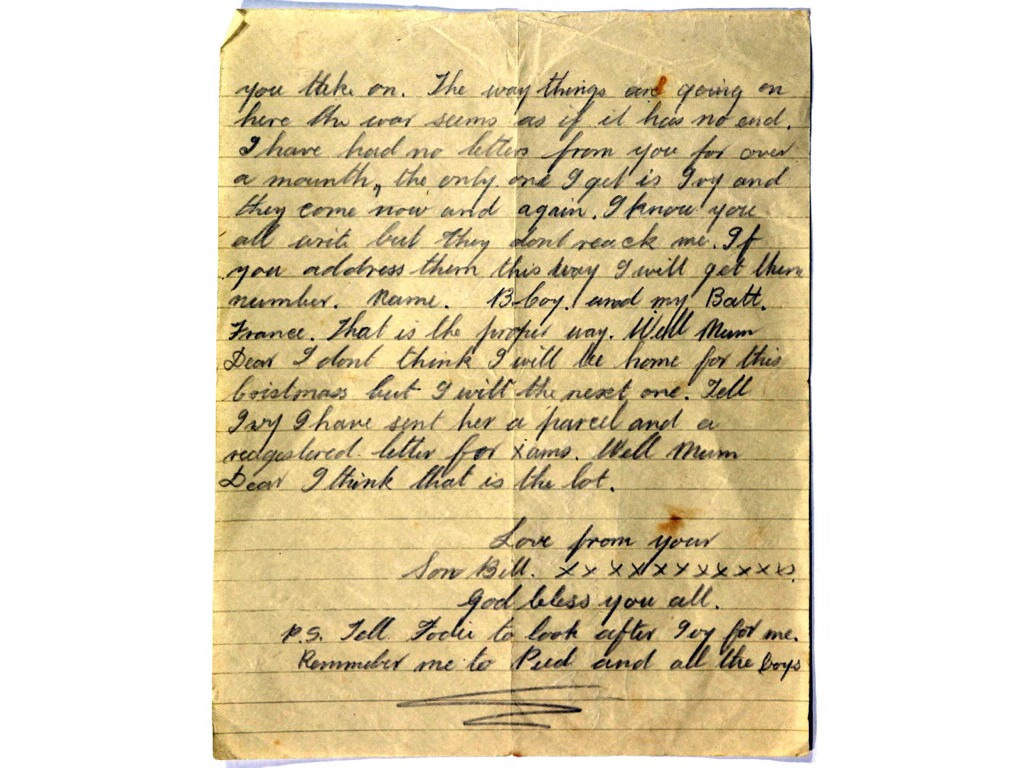 you tike on. The way things are going on
here the war seems as if it has no end.
I have had no letters from you for over
a mounth, the only one I get is Ivy and
they come now and again. I know you
all write but they dont reach me. If
you address them this way I will get them
number. Name. B. Coy. and my Batt.
France. That is the proper way. Well Mum
Dear I dont think I will be home for this
Cristmass but I will the next one. Tell
Ivy I have sent her a parcel and a
reagestered letter for Xams. Well Mum
Dear I think that is the lot.
Love from your
Son Bill. xxxxxxxxxxxx.
God bless you all.
P.S. Tell to look after Ivy for me.
Remmeber me to and all the boys